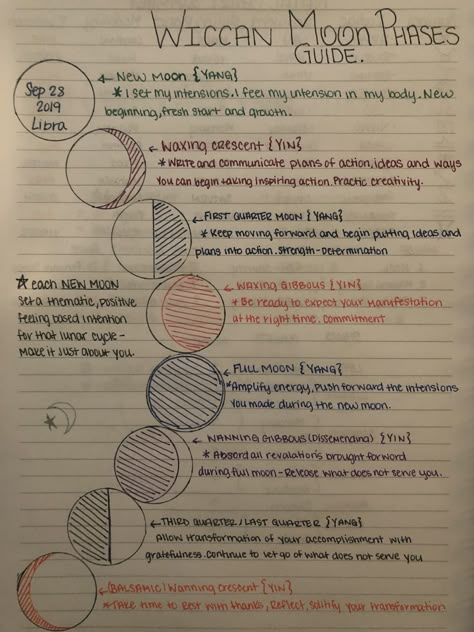 WICCAN MOON PHASES
GUIDE.
Sep 28
2019
Libra
← NEW MOON {YANG}
* I set my intensions. I feel my intension in my body. New
beginning, fresh start and growth.
← WAXING CRESCENT {YIN}
* Write and communicate plans of action, ideas and ways
you can begin taking inspiring action. Practic creativity.
← FIRST QUARTER MOON {YANG}
* Keep moving forward and begin putting ideas and
plans into action. Strength - Determination
★ each NEW MOON
set a thematic, positive
feeling based intention
for that lunar cycle -
make it just about you.
← WAXING GIBBOUS {YIN}
* Be ready to expect your manifestation
at the right time. Commitment
← FULL MOON {YANG}
* Amplify energy, push forward the intensions
you made during the new moon.
← WANNING GIBBOUS (DISSEMENDING) {YIN}
* Absord all revalations brought forward
during full moon - Release what does not serve you.
← THIRD QUARTER / LAST QUARTER {YANG}
Allow transformation of your accomplishment with
gratefulness. Continue to let go of what does not serve you
← (BALSAMIC) Wanning Crescent {YIN}
* Take time to Rest with thanks, Reflect, solitify your transformation